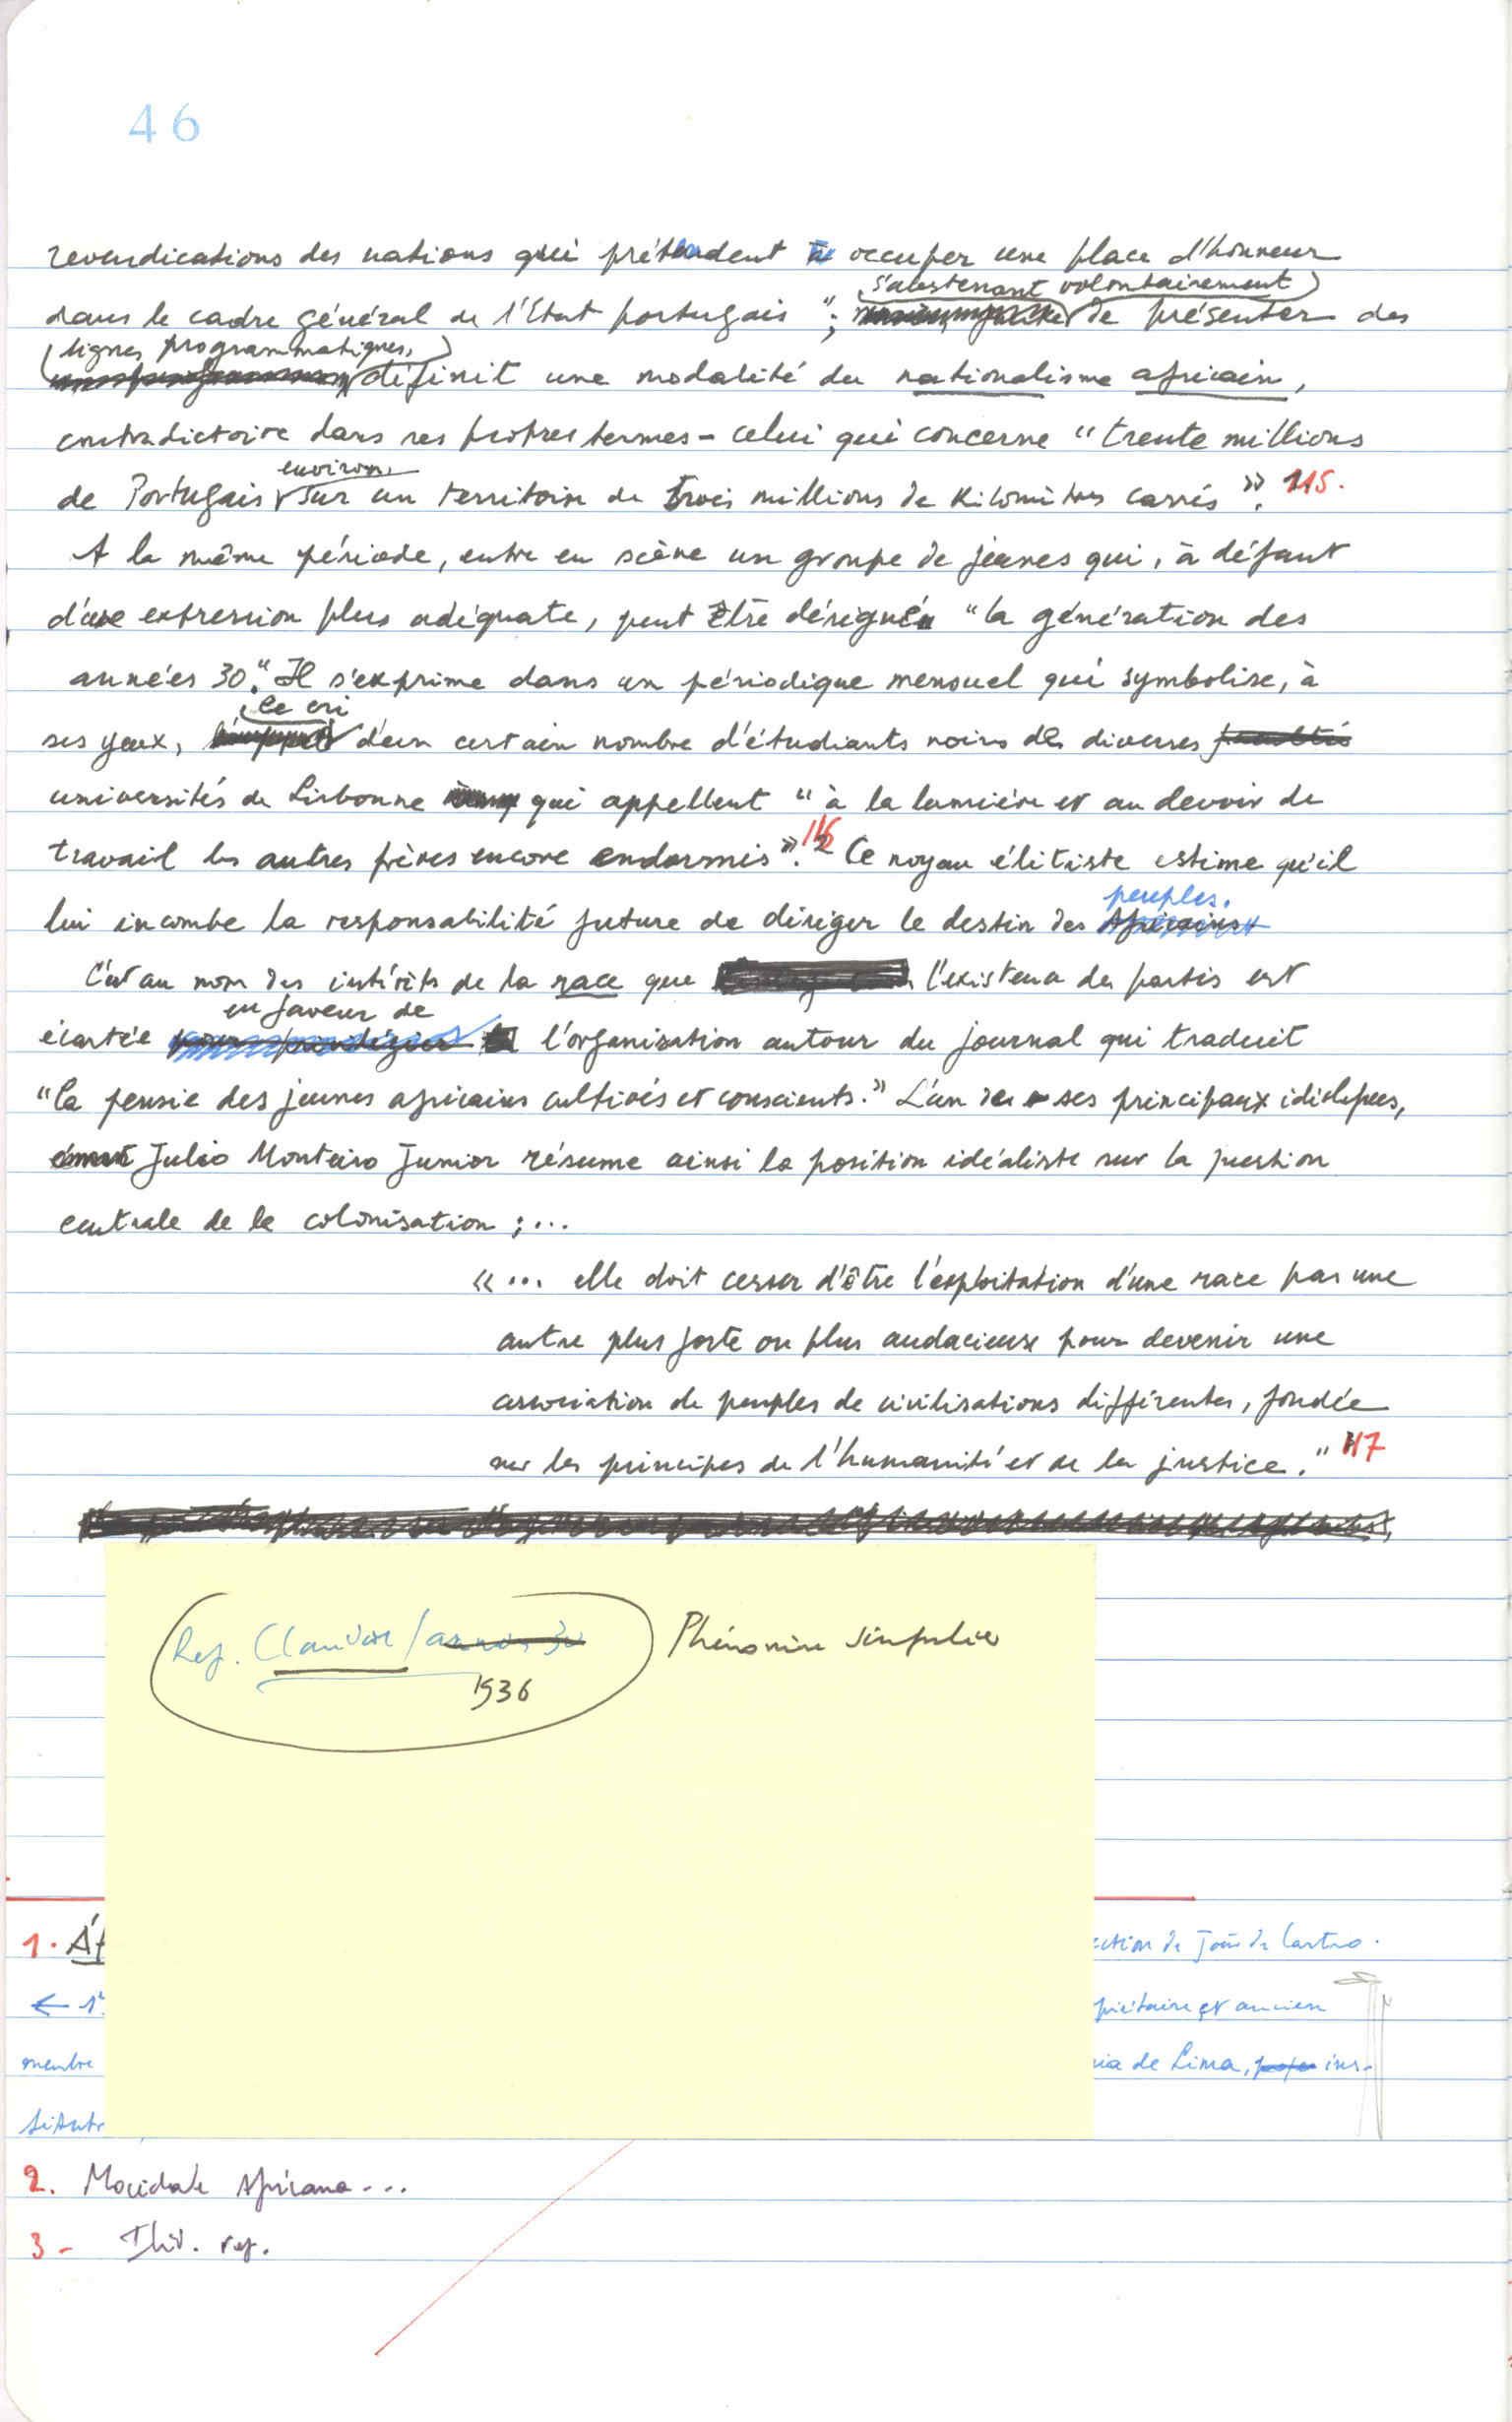 46
revendications des nations qui prétendent occuper une place d'honneur
s'abstenant volontairement
dans le cadre général de l'Etat portugais "; de présenter des
lignes programmatiques,
définit une modalité du nationalisme africain,
contradictoire dans ses propres termes - celui qui concerne "trente millions
environ
de Portugais sur un territoire de trois millions de Kilomètres carrés ". 115.
A la même période, entre en scène un groupe de jeunes qui, à défaut
d'une expression plus adéquate, peut être désigné "la génération des
années 30." Il s'exprime dans un périodique mensuel qui symbolise, à
le cri
ses yeux, d'un certain nombre d'étudiants noirs des diverses facultés
universités de Lisbonne qui appellent "à la lumière et au devoir de
travail les autres frères encore endormis". 116 Ce noyau élitiste estime qu'il
peuples.
lui incombe la responsabilité future de diriger le destin des Africains
C'est au nom des intérêts de la race que l'existence de partis est
en faveur de
écartée l'organisation autour du journal qui traduit
"la pensée des jeunes africains cultivés et conscients." L'un de ses principaux idéologues,
Julio Monteiro Junior résume ainsi la position idéaliste sur la question
centrale de la colonisation ; ...
« ... elle doit cesser d'être l'exploitation d'une race par une
autre plus forte ou plus audacieuse pour devenir une
association de peuples de civilisations différentes, fondée
sur les principes de l'humanité et de la justice." 117
Ref. /années 30 Phénomène singulier
1936
1. Áf ction de João de Castro.
← 1 priétaire et ancien
membre ria de Lima, ins-
titut
2. Mocidade Africana...
3 - Ibid. ref.